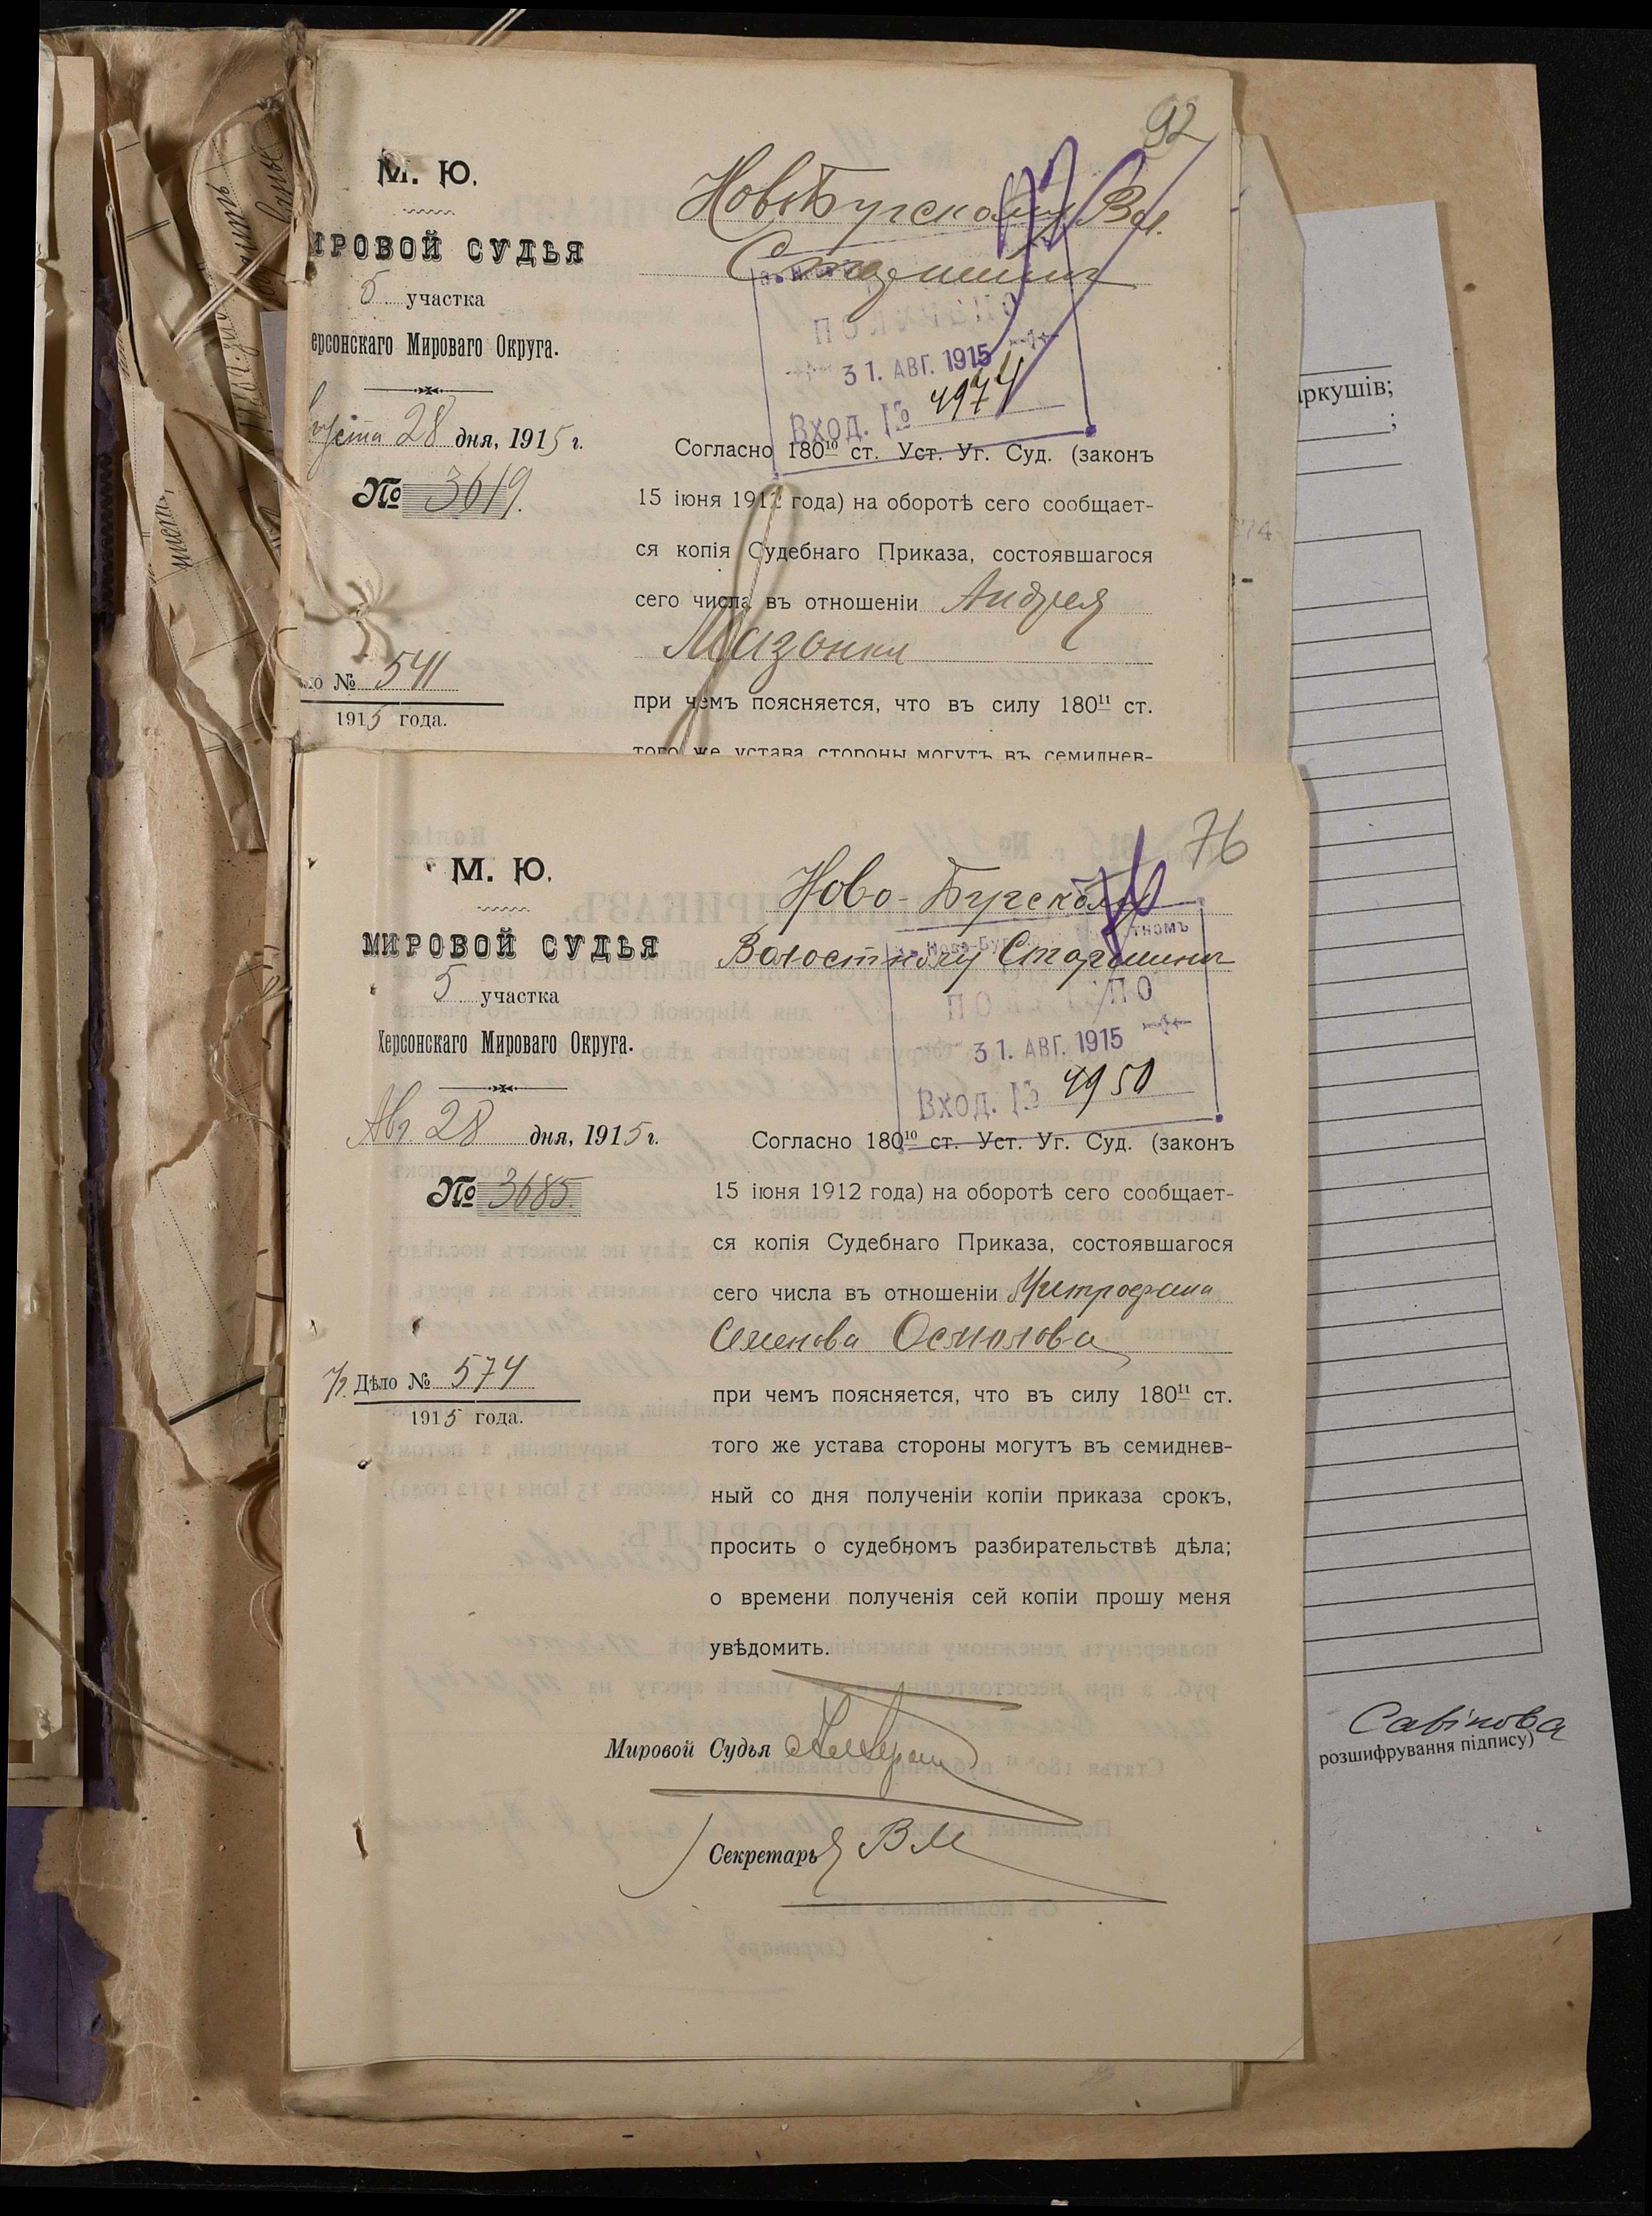 92
М. Ю.
Новобугскому Вол.
Старшинѣ
МИРОВОЙ СУДЬЯ
5 участка
ерсонскаго Мироваго Округа.
ПОЛУЧЕНО
31. АВГ. 1915
Вход. № 4974
Августа 28 дня, 1915 г.
№ 3619.
Согласно 180¹⁰ ст. Уст. Уг. Суд. (законъ
15 іюня 1912 года) на оборотѣ сего сообщает-
ся копія Судебнаго Приказа, состоявшагося
сего числа въ отношеніи Андрея
Мазонки
ло № 541
1915 года.
при чемъ поясняется, что въ силу 180¹¹ ст.
того же устава стороны могутъ въ семиднев-
76
М. Ю.
Ново-Бугскому
Волостному Старшинѣ
МИРОВОЙ СУДЬЯ
5 участка
Херсонскаго Мироваго Округа.
ПОЛУЧЕНО
31. АВГ. 1915
Вход. № 4950
Авг. 28 дня, 1915 г.
№ 3685.
Согласно 180¹⁰ ст. Уст. Уг. Суд. (законъ
15 іюня 1912 года) на оборотѣ сего сообщает-
ся копія Судебнаго Приказа, состоявшагося
сего числа въ отношеніи Митрофана
Семенова Осмолова
Дѣло № 574
1915 года.
при чемъ поясняется, что въ силу 180¹¹ ст.
того же устава стороны могутъ въ семиднев-
ный со дня полученіи копіи приказа срокъ,
просить о судебномъ разбирательствѣ дѣла;
о времени полученія сей копіи прошу меня
увѣдомить.
Мировой Судья
Секретарь
ркушів;
;
Савінова
розшифрування підпису)